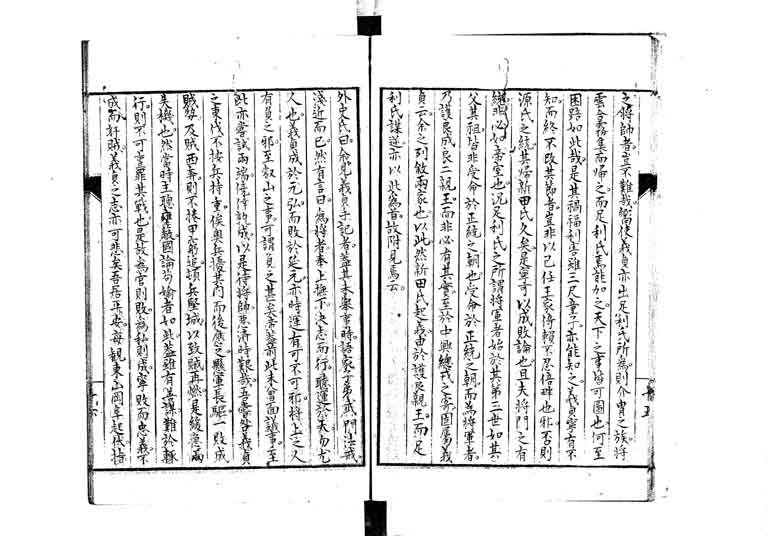 之將帥者豈不難哉嚮使義貞亦出足利氏所為則介冑之族將
雲合霧集而歸之而足利氏焉能加之天下之事皆可圖也何至
困踣如此哉是其禍福利害雖三尺童子亦能知之義貞寧有不
知而終不改其節者豈非以己任王家倚賴不忍倍畔也邪否則
源氏之統其歸新田氏久矣是寧可以成敗論也且夫將門之有
統非必如帝室也况足利氏之所謂將軍者始於其第二世如其
父其祖皆非受命於正統之朝也受命於正統之朝而為將軍者
乃護良成良二親王而非必有其實至於中興總戎之寄固屬義
貞云余之列敘兩家也以此然新田氏起義由於護良親王而足
利氏謀逆亦以此為首故附見焉云
外史氏曰余見義貞手記者蓋其未舉事時語家子弟武門法戒
淺近而已然有言曰為將者奉上撫下決志而行聽運於天勿尤
人也義貞成於元弘而敗於延元亦時運有可不可邪將上之人
有負之邪至叡山之事可謂負之甚矣帝蓋前此未嘗面議事至
此亦嘗試兩端倖成以是待將帥惡濟時艱哉吾嘗咎義貞
之東伐不按兵持重俟奧兵擾其門而後應之驟軍長驅一敗成
賊勢及賊西奔則不捲甲窮追頓兵堅城以致賊再燃是緩急兩
失機也然當時主聰壅蔽國論苟媮者如此蓋雖有善謀難於輙
行則不可專罪其戰也是故為官則敗為私則成寧敗而忠義不
成而奸賊義貞之志亦可悲矣吾每觀東山岡阜起伏指